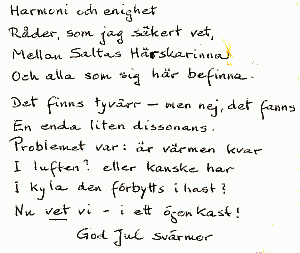 Harmoni och enighet
Råder, som jag säkert vet,
Mellan Saltas Härskarinna
Och alla som sig här befinna.
Det finns tyvärr – men nej, det fanns
En enda liten dissonans.
Problemet var: är värmen kvar
I luften? eller kanske har
I kyla den förbytts i hast?
Nu vet vi – i ett ögonkast!
God Jul svärmor